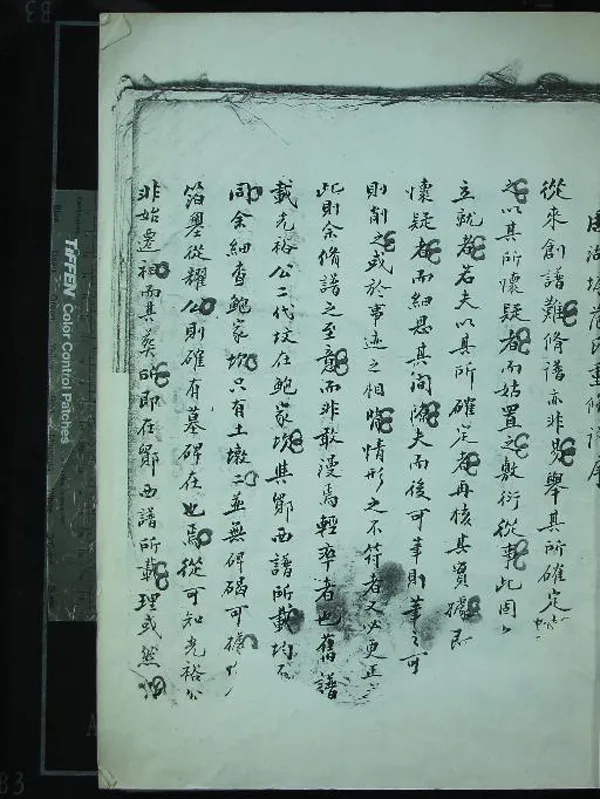 從來創譜難脩譜亦非易舉其所確定
之以其所懷疑者而姑置之敷衍從事此固
立就者若夫以其所確定者再核其實據
懷疑者而細思其間隙夫而後可筆則筆之可
則削之或於事迹之相 情形之不符者又必更正
此則余脩譜之至意而非敢漫焉輕率者也舊譜
載光裕公二代坟在鮑家坎其鄒西譜所載均
同余細查鮑家坎只有土墩二並無碑碣可據
箔墨從耀公則確有墓碑在也焉從可知光裕公
非始遷祖而其葬所即在鄒西譜所載理或然
TIFFEN Color Control Patches
Blue
B3
B3